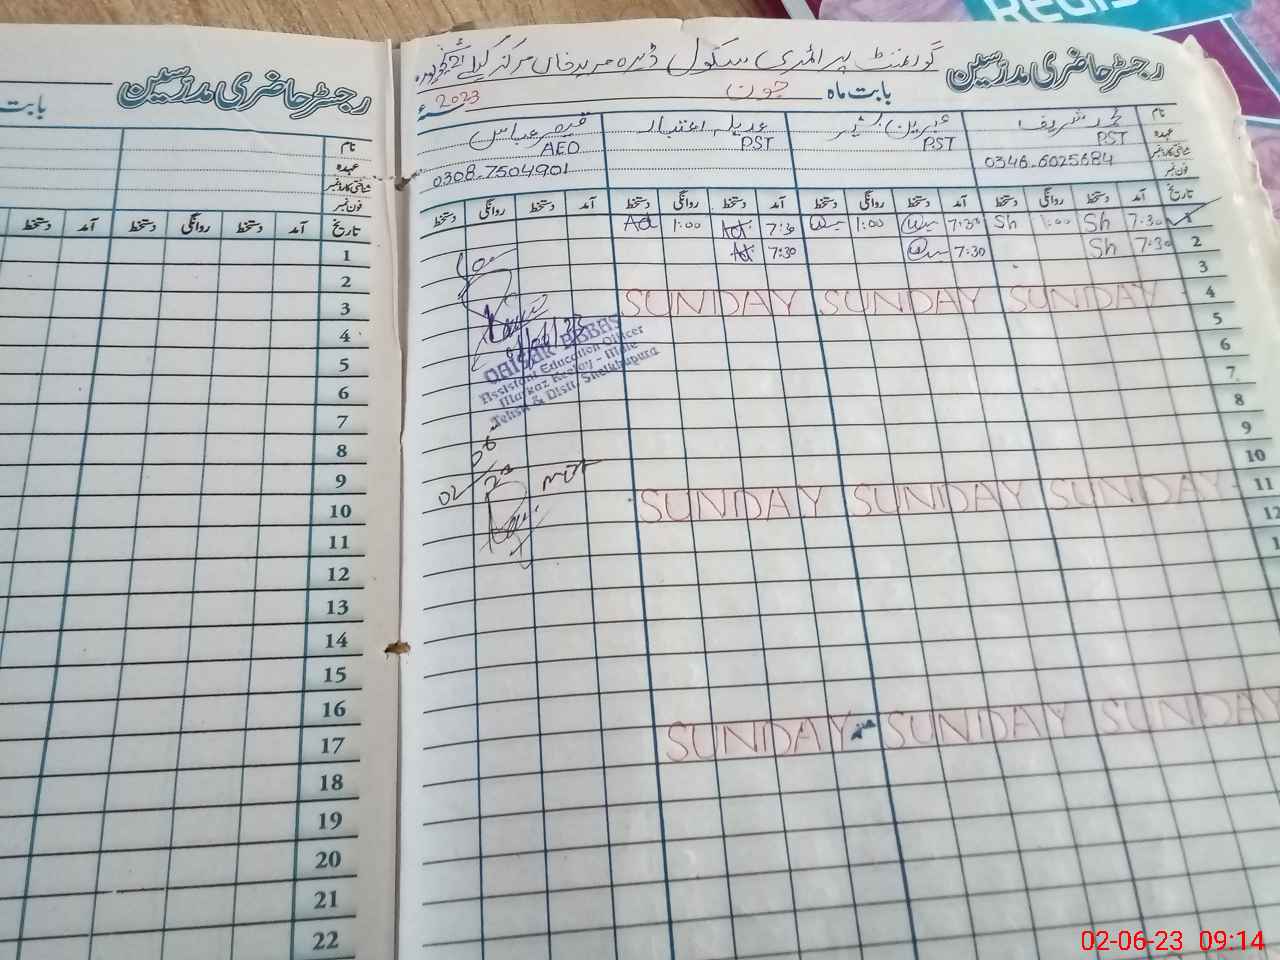 رجسٹر حاضری مدرسین
گورنمنٹ پرائمری سکول ڈیرہ مرید خاں مرکز
بابت ماہ جون 2023ء
نام محمد شریف عنبرین بشیر عدیلہ قیصر عباس
عہدہ PST PST PST AEO
شناختی کارڈ نمبر 0346-6025684 0308-7504901
فون نمبر
تاریخ آمد دستخط روانگی دستخط آمد دستخط روانگی دستخط آمد دستخط روانگی دستخط آمد دستخط روانگی دستخط
7:30 Sh 1:00 Sh 7:30 1:00 7:30 Ad 1:00 Ad
2 7:30 Sh 7:30 7:30 Ad
3
4 SUNDAY SUNDAY SUNDAY
5
6
7
8
9
10
11 SUNDAY SUNDAY SUNDAY
12
SUNDAY SUNDAY SUNDAY
QAISAR ABBAS
Assistant Education Officer
Markaz Keeloy - Male
Tehsil & Distt. Sheikhupura
02/06
رجسٹر حاضری مدرسین
بابت
نام
عہدہ
شناختی کارڈ نمبر
فون نمبر
تاریخ آمد دستخط روانگی دستخط آمد دستخط
1
2
3
4
5
6
7
8
9
10
11
12
13
14
15
16
17
18
19
20
21
22
Regis
02-06-23 09:14